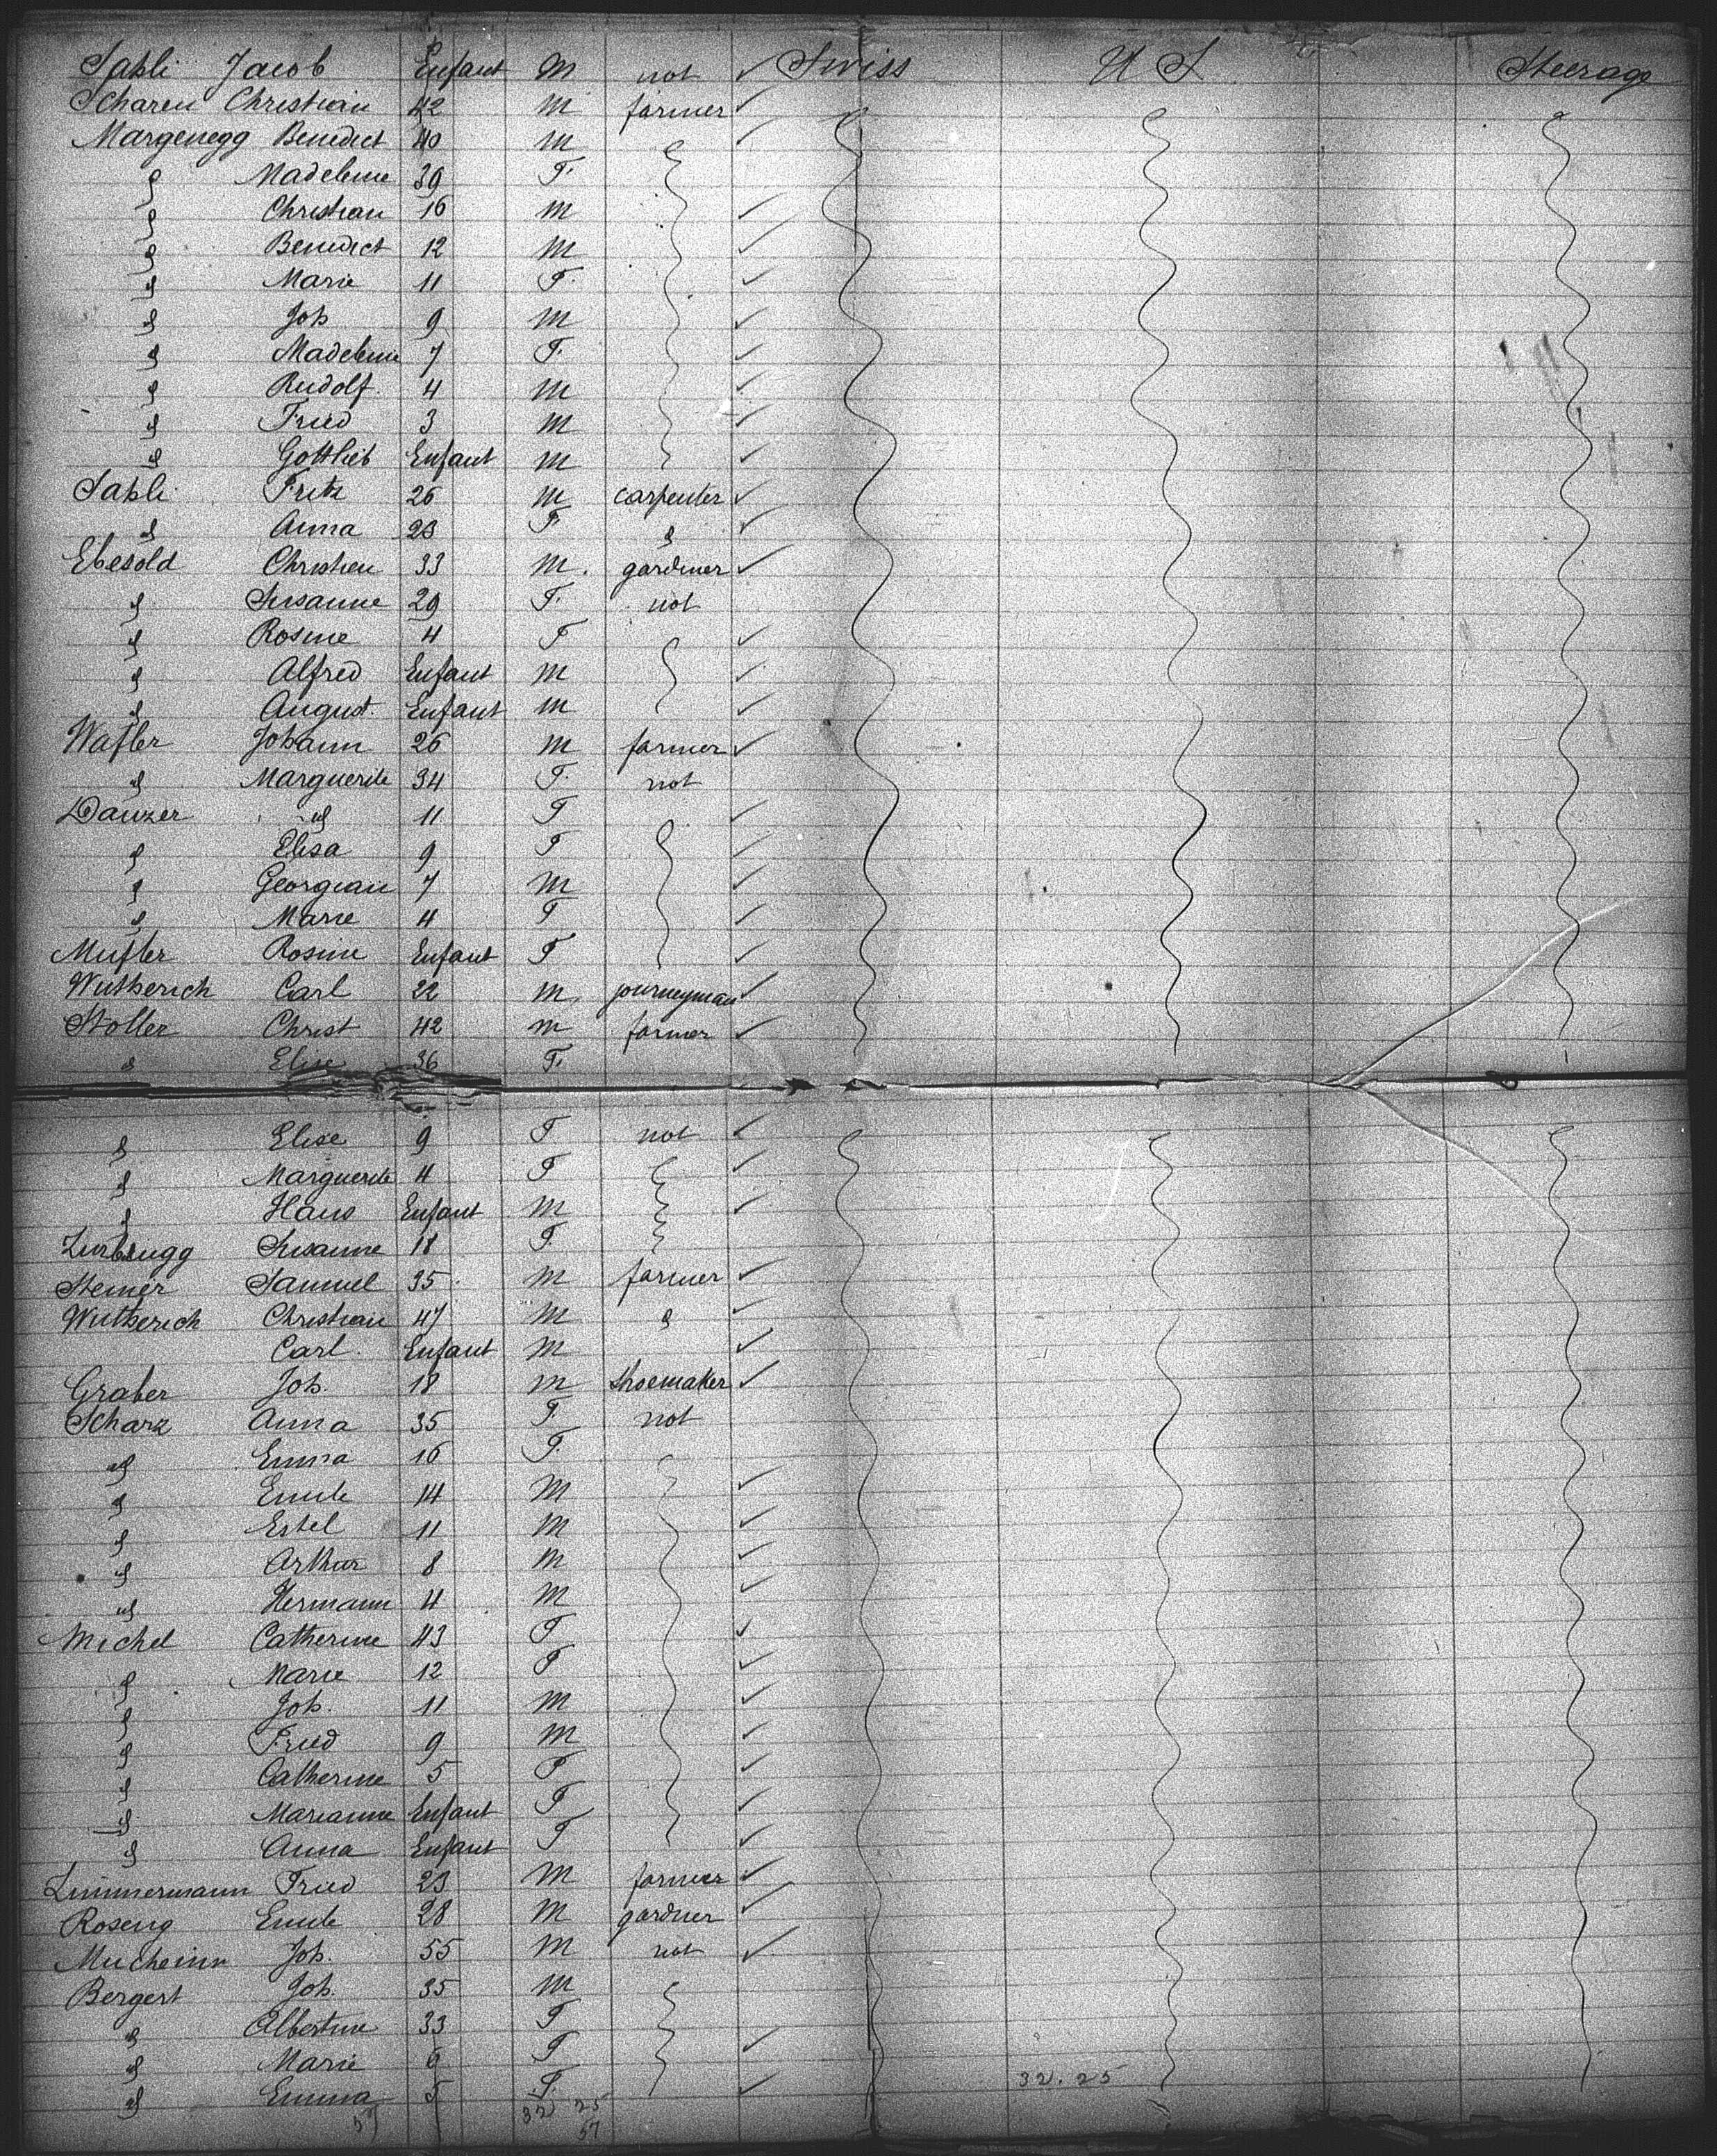 Sahli Jacob Enfant M not ✓ Swiss U S Steerage
Scharen Christian 42 M farmer ✓
Margenegg Benedict 40 M ✓
" Madeleine 39 F
" Christian 16 M ✓
" Benedict 12 M ✓
" Marie 11 F ✓
" Joh 9 M ✓
" Madeleine 7 F ✓
" Rudolf 4 M ✓
" Fried 3 M ✓
" Gottlieb Enfant M ✓
Sahli Fritz 26 M carpenter ✓
" Anna 23 F " ✓
Ebesold Christien 33 M gardiner ✓
" Susanne 29 F not
" Rosine 4 F ✓
" Alfred Enfant M ✓
" August Enfant M ✓
Wafler Johann 26 M farmer ✓
" Marguerite 34 F not
Danzer " 11 F ✓
" Elisa 9 F ✓
" Georgian 7 M ✓
" Marie 4 F ✓
Mufler Rosine Enfant F ✓
Wutherich Carl 22 M journeyman ✓
Stoller Christ 42 M farmer ✓
" Elise 36 F
" Elise 9 F not ✓
" Marguerite 4 F ✓
" Hans Enfant M ✓
Zurbrugg Susanne 18 F
Steiner Samuel 35 M farmer ✓
Wutherich Christian 47 M " ✓
Carl Enfant M ✓
Graber Joh. 18 M shoemaker ✓
Scharz Anna 35 F not
" Emma 16 F
" Emile 14 M ✓
" Estel 11 M ✓
" Arthur 8 M ✓
" Hermann 4 M ✓
Michel Catherine 43 F ✓
" Marie 12 F ✓
" Joh. 11 M ✓
" Fried 9 M ✓
" Catherine 5 F ✓
" Marianne Enfant F ✓
" Anna Enfant F ✓
Zimmermann Fried 23 M farmer ✓
Roseng Emile 28 M gardner ✓
Mucheim Joh. 55 M not ✓
Bergert Joh. 35 M
" Albertine 33 F
" Marie 6 F ✓
" Emma 5 F ✓ 32.25
57 32 25
57